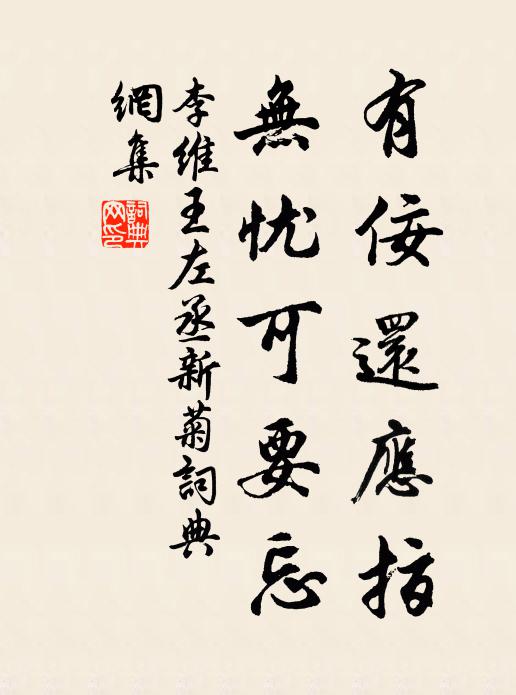 有佞還應指
無忧可要忘
李維王左丞新菊詞典
網集
詞典
网印